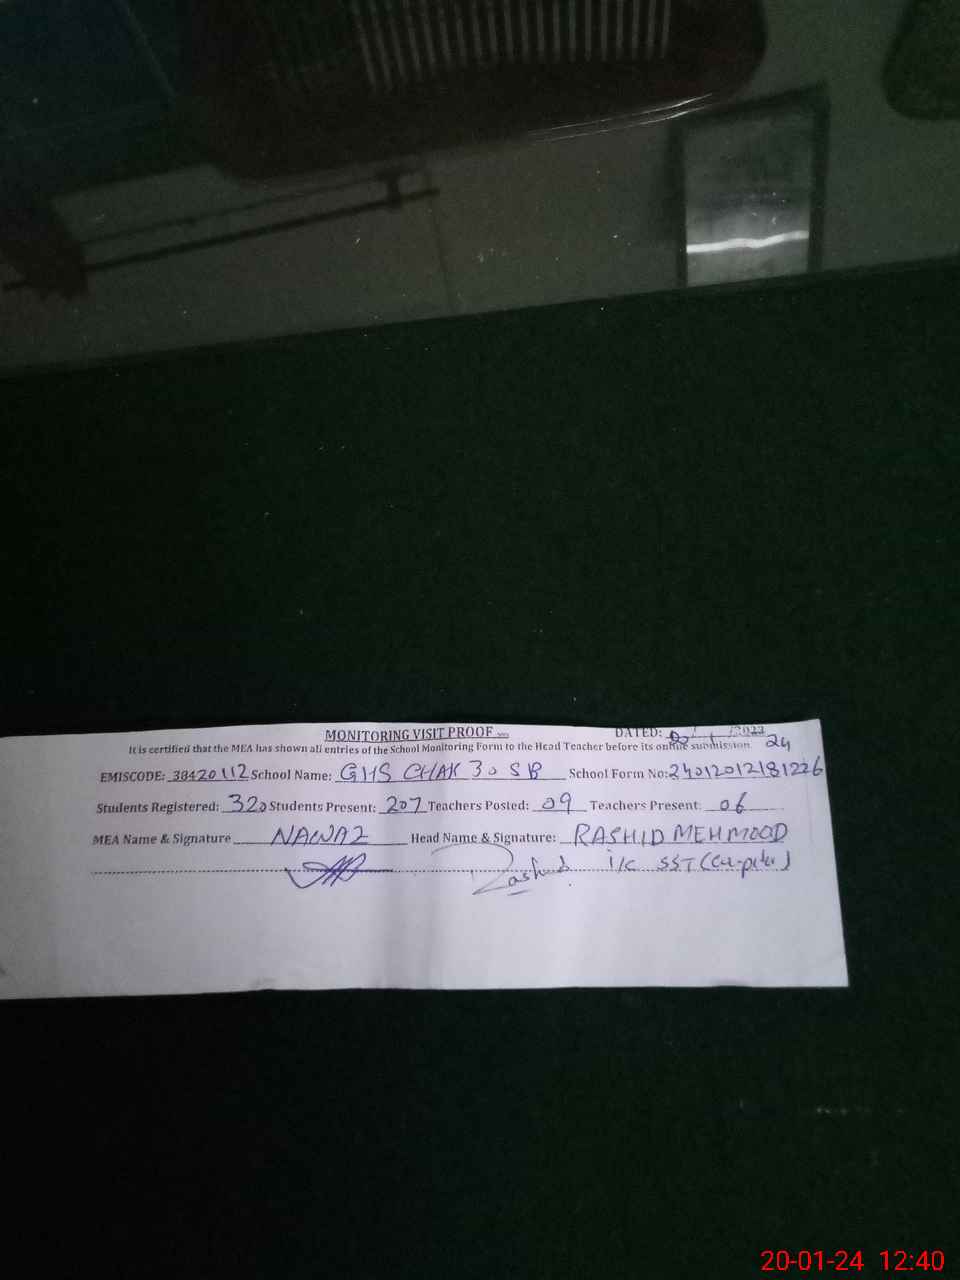 MONITORING VISIT PROOF
DATED: / /2022
It is certified that the MEA has shown all entries of the School Monitoring Form to the Head Teacher before its online submission. 24
EMISCODE: 38420112 School Name: GHS CHAK 30 SB School Form No: 24012012181226
Students Registered: 320 Students Present: 207 Teachers Posted: 09 Teachers Present: 06
MEA Name & Signature NAWAZ Head Name & Signature: RASHID MEHMOOD
Rashid i/c SST (Computer)
20-01-24 12:40